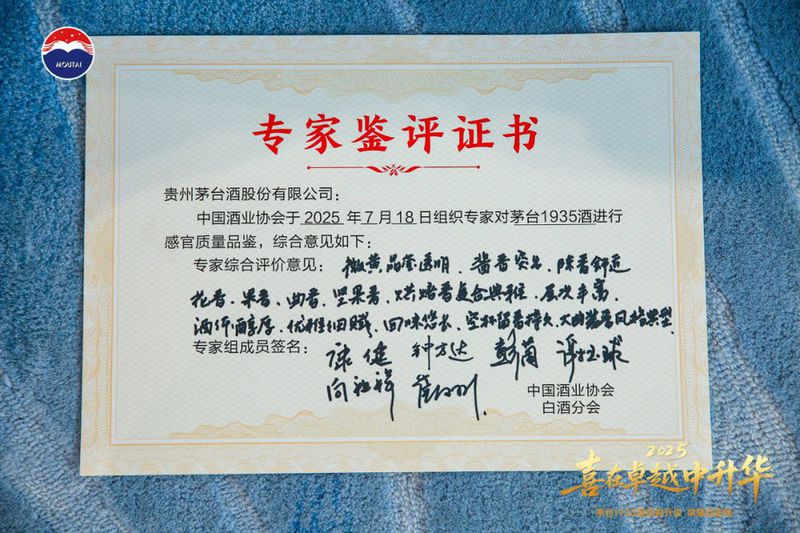 MOUTAI
专家鉴评证书
贵州茅台酒股份有限公司：
中国酒业协会于 2025 年 7 月 18 日组织专家对茅台1935酒进行
感官质量品鉴，综合意见如下：
专家综合评价意见：微黄晶莹透明、酱香突出、陈香舒适
花香、果香、曲香、坚果香、烘焙香复合典雅、层次丰富、
酒体醇厚、优雅细腻、回味悠长、空杯留香持久、大曲酱香风格典型
专家组成员签名：钟方达
中国酒业协会
白酒分会
2025
喜在卓越中升华